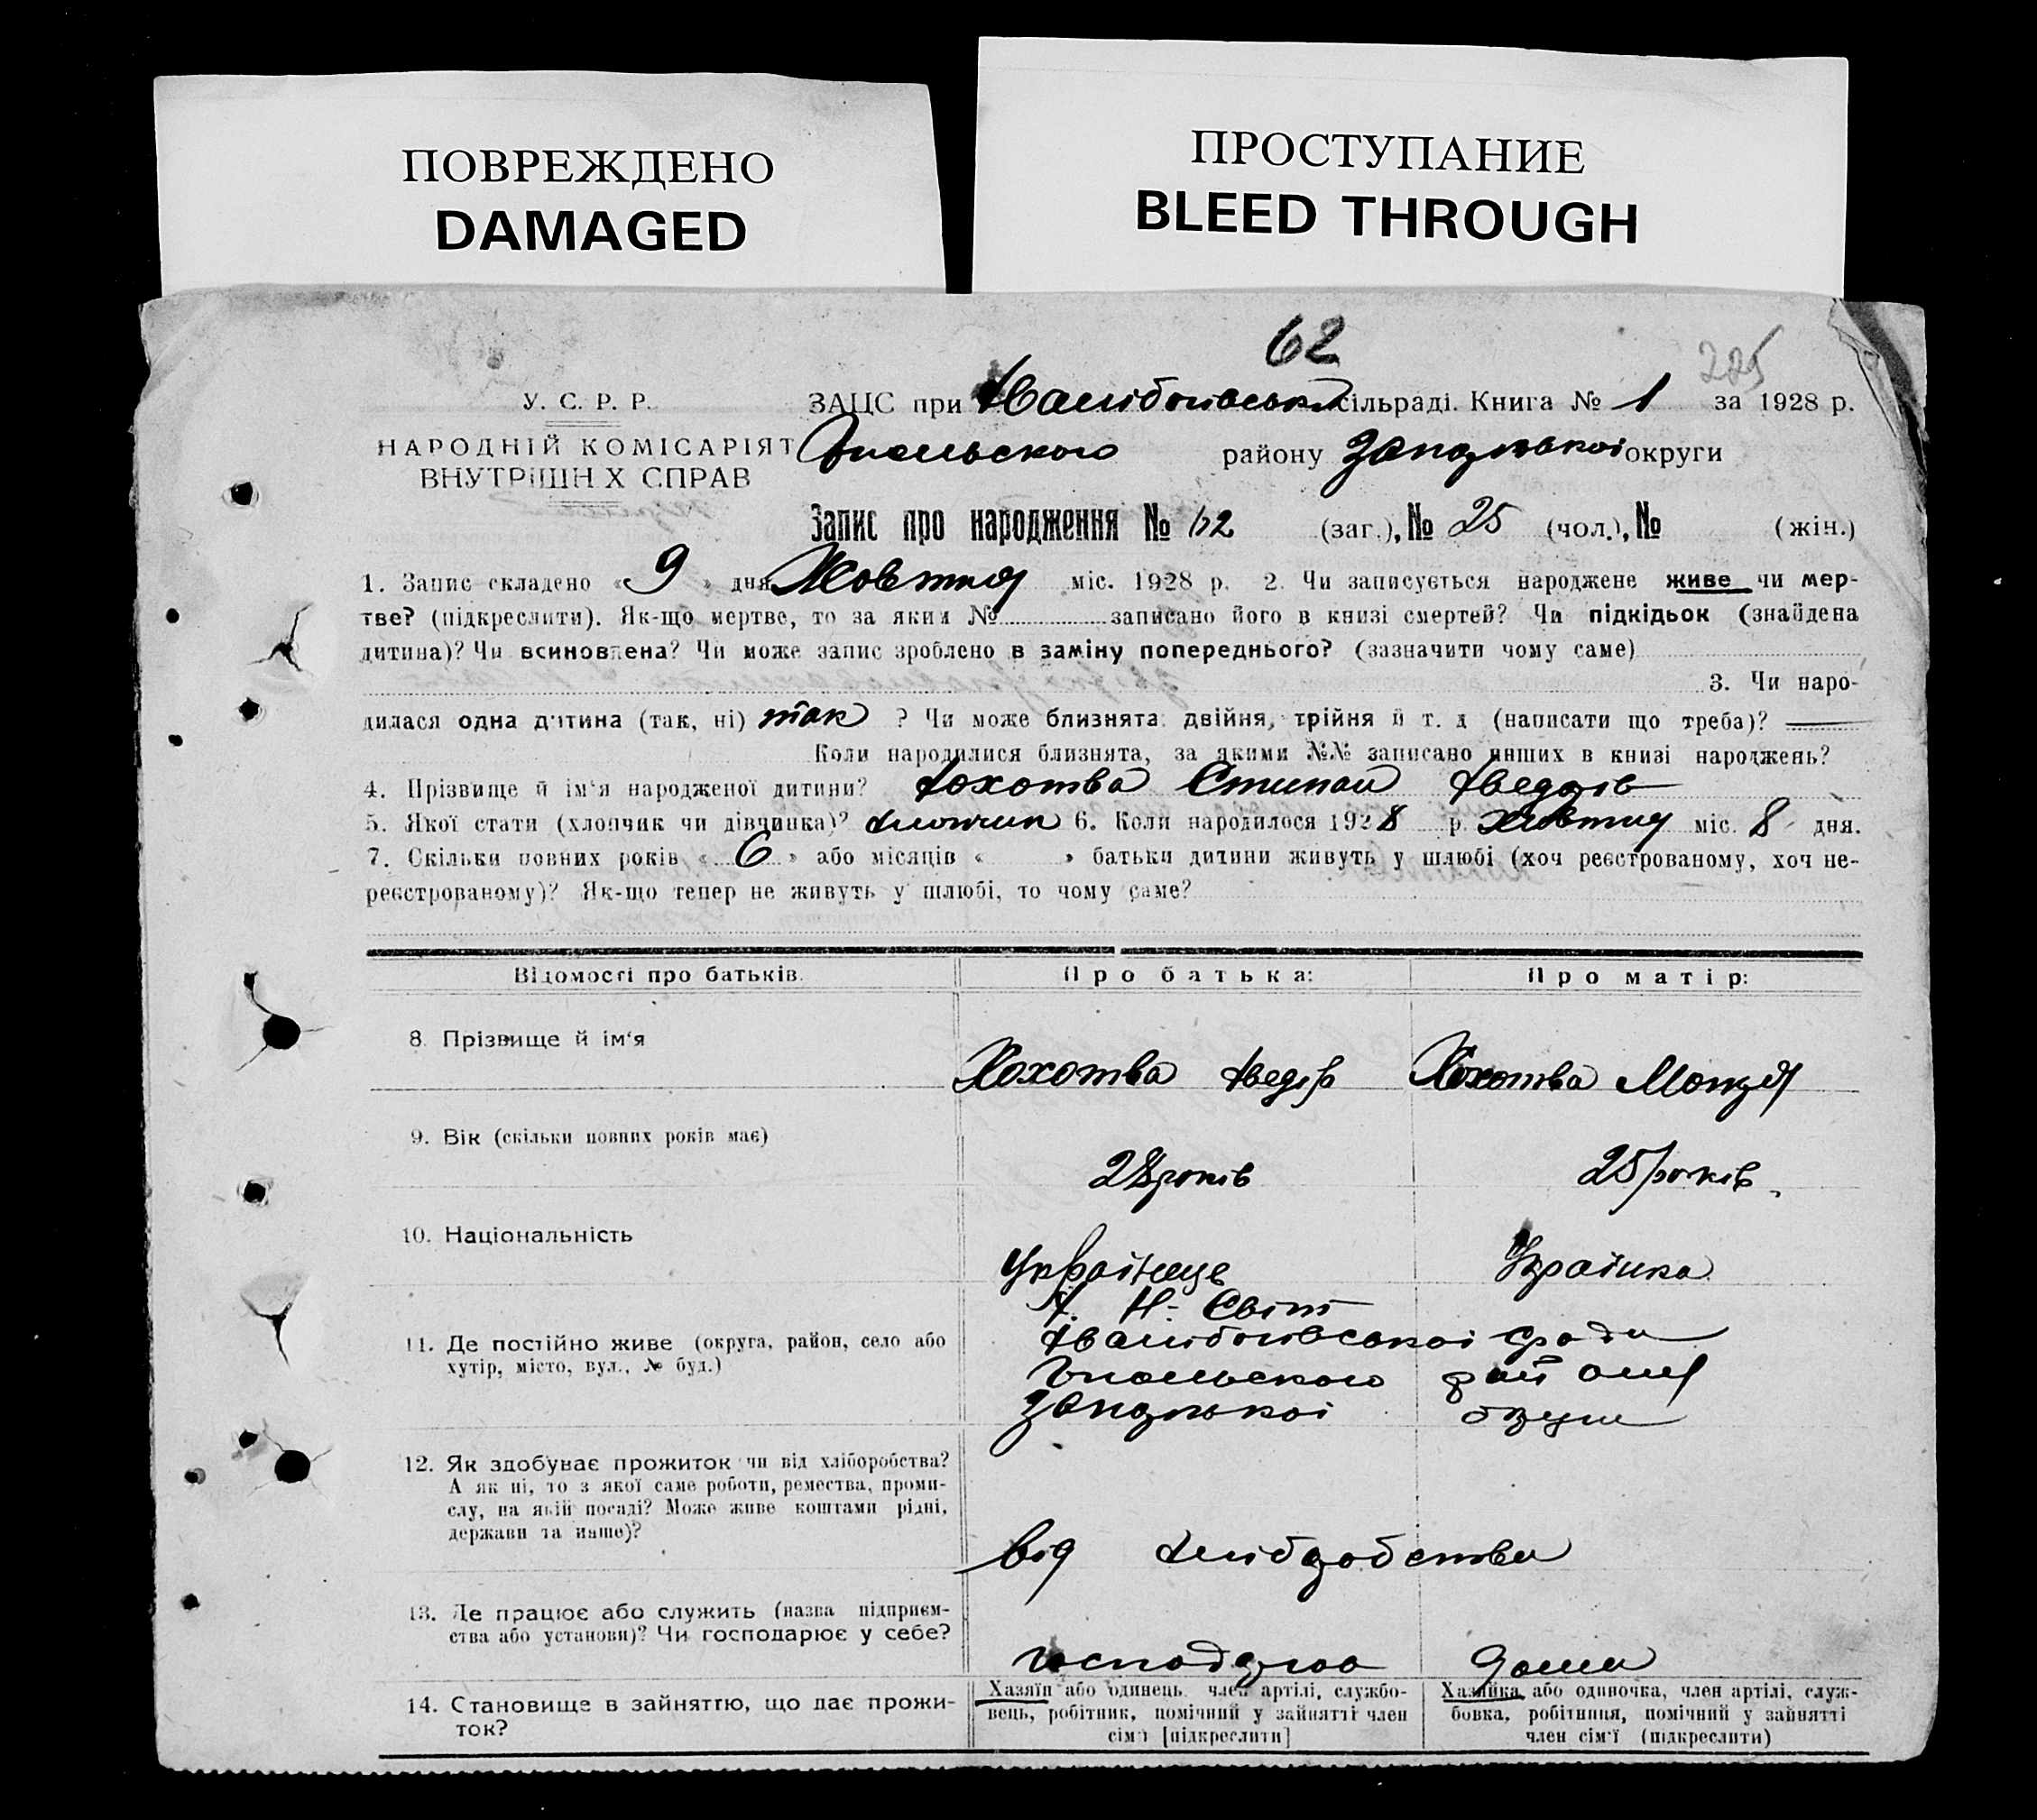 ПОВРЕЖДЕНО
DAMAGED
ПРОСТУПАНИЕ
BLEED THROUGH
62
225
У. С. Р. Р.
ЗАЦС при сільраді. Книга № 1 за 1928 р.
НАРОДНІЙ КОМІСАРІЯТ
ВНУТРІШН Х СПРАВ
району Запорізької округи
Запис про народження № 62 (заг.), № 25 (чол.), № (жін.)
1. Запис складено « 9 » дня Жовтня міс. 1928 р. 2. Чи записується народжене живе чи мер-
тве? (підкреслити). Як-що мертве, то за яким № записано його в книзі смертей? Чи підкідьок (знайдена
дитина)? Чи всиновлена? Чи може запис зроблено в заміну попереднього? (зазначити чому саме)
3. Чи наро-
дилася одна дитина (так, ні) так ? Чи може близнята: двійня, трійня й т. д (написати що треба)?
Коли народилися близнята, за якими №№ записано инших в книзі народжень?
4. Прізвище й ім'я народженої дитини? Хохотва Степан Хведорів
5. Якої статі (хлопчик чи дівчинка)? хлопчик 6. Коли народилося 1928 р. жовтня міс. 8 дня.
7. Скільки повних років « 6 » або місяців « » батьки дитини живуть у шлюбі (хоч реєстрованому, хоч не-
реєстрованому)? Як-що тепер не живуть у шлюбі, то чому саме?
Відомості про батьків.
Про батька:
Про матір:
8. Прізвище й ім'я
Хохотва Хведір
Хохотва
9. Вік (скільки повних років має)
28 років
25 років.
10. Національність
Українець
Українка
11. Де постійно живе (округа, район, село або
хутір, місто, вул., № буд.)
Х. Н.- Світ
с ради
району
Запорізької округи
12. Як здобуває прожиток чи від хліборобства?
А як ні, то з якої саме роботи, ремества, проми-
слу, на якій посаді? Може живе коштами рідні,
держави та инше)?
від хліборобства
13. Де працює або служить (назва підприєм-
ства або установи)? Чи господарює у себе?
господарює дома
14. Становище в зайняттю, що дає прожи-
ток?
Хазяїн або одинець, член артілі, службо-
вець, робітник, помічний у зайнятті член
сім'ї [підкреслити]
Хазяйка або одиночка, член артілі, служ-
бовка, робітниця, помічний у зайнятті
член сім'ї (підкреслити)